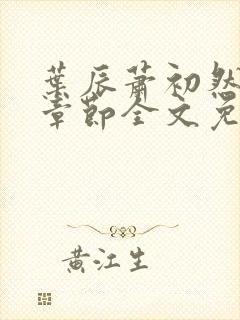 葉辰蕭初然
章節全文免
黄江生